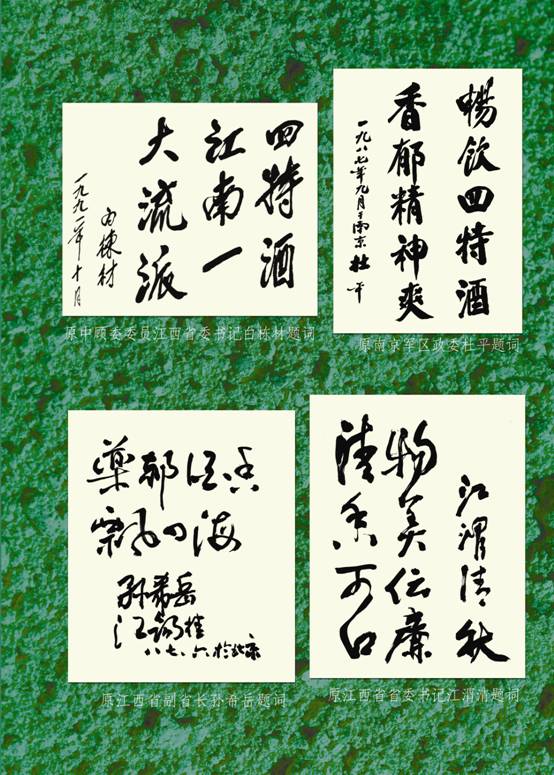 四特酒
江南一
大流派
白栋材
一九九一年十月
原中顾委委员江西省委书记白栋材题词
暢饮四特酒
香郁精神爽
一九八七年九月于南京 杜平
原南京军区政委杜平题词
藥都酒香
飘四海
孙希岳
八七、六於北京
原江西省副省长孙希岳题词
江渭清
物美价廉
清香可口
原江西省省委书记江渭清题词